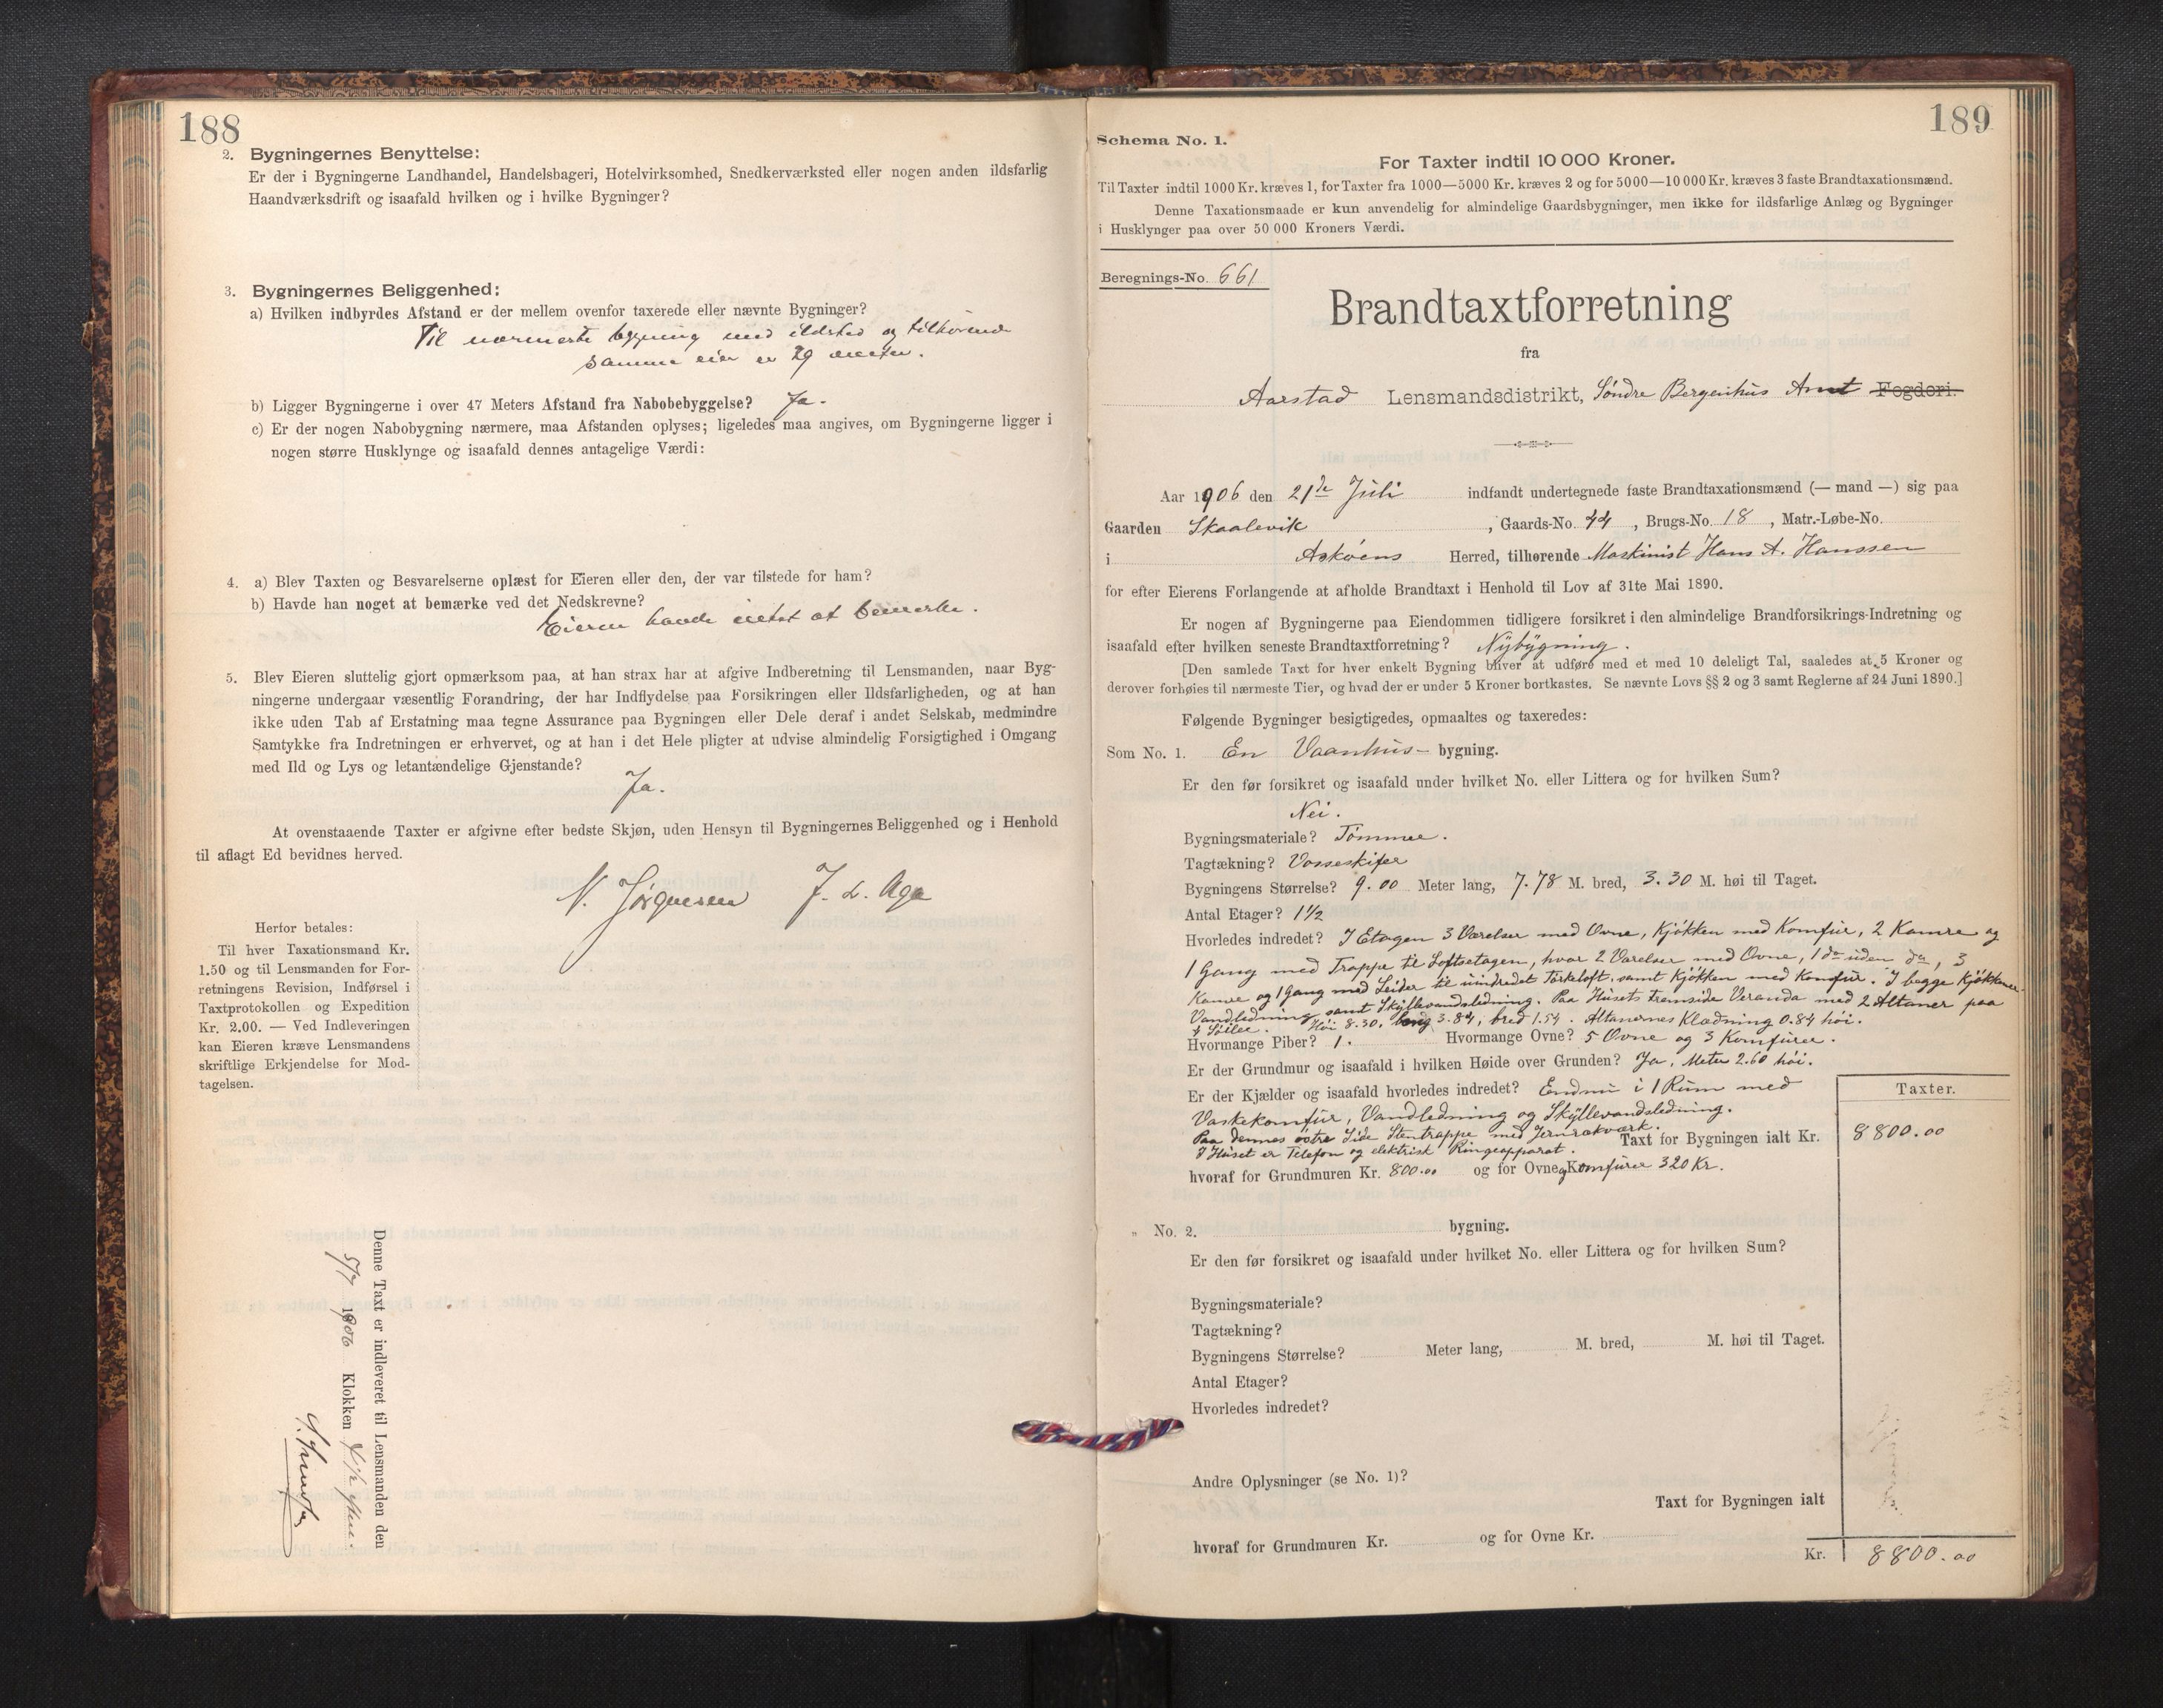 188
2. Bygningernes Benyttelse:
Er der i Bygningerne Landhandel, Handelsbageri, Hotelvirksomhed, Snedkerværksted eller nogen anden ildsfarlig
Haandværksdrift og isaafald hvilken og i hvilke Bygninger?
3. Bygningernes Beliggenhed:
a) Hvilken indbyrdes Afstand er der mellem ovenfor taxerede eller nævnte Bygninger?
Til nærmeste bygning med ildsted og tilhørende
samme eier er 29 meter.
b) Ligger Bygningerne i over 47 Meters Afstand fra Nabobebyggelse? Ja.
c) Er der nogen Nabobygning nærmere, maa Afstanden oplyses; ligeledes maa angives, om Bygningerne ligger i
nogen større Husklynge og isaafald dennes antagelige Værdi:
4. a) Blev Taxten og Besvarelserne oplæst for Eieren eller den, der var tilstede for ham?
b) Havde han noget at bemærke ved det Nedskrevne?
Eieren havde intet at bemerke.
5. Blev Eieren sluttelig gjort opmærksom paa, at han strax har at afgive Indberetning til Lensmanden, naar Byg-
ningerne undergaar væsentlig Forandring, der har Indflydelse paa Forsikringen eller Ildsfarligheden, og at han
ikke uden Tab af Erstatning maa tegne Assurance paa Bygningen eller Dele deraf i andet Selskab, medmindre
Samtykke fra Indretningen er erhvervet, og at han i det Hele pligter at udvise almindelig Forsigtighed i Omgang
med Ild og Lys og letantændelige Gjenstande?
Ja.
At ovenstaaende Taxter er afgivne efter bedste Skjøn, uden Hensyn til Bygningernes Beliggenhed og i Henhold
til aflagt Ed bevidnes herved.
N. Jørgensen J. L. Aga
Herfor betales:
Til hver Taxationsmand Kr.
1.50 og til Lensmanden for For-
retningens Revision, Indførsel i
Taxtprotokollen og Expedition
Kr. 2.00. — Ved Indleveringen
kan Eieren kræve Lensmandens
skriftlige Erkjendelse for Mod-
tagelsen.
Denne Taxt er indleveret til Lensmanden den
1906 Klokken
189
Schema No. 1.
For Taxter indtil 10 000 Kroner.
Til Taxter indtil 1000 Kr. kræves 1, for Taxter fra 1000—5000 Kr. kræves 2 og for 5000—10 000 Kr. kræves 3 faste Brandtaxationsmænd.
Denne Taxationsmaade er kun anvendelig for almindelige Gaardsbygninger, men ikke for ildsfarlige Anlæg og Bygninger
i Husklynger paa over 50 000 Kroners Værdi.
Beregnings-No. 661
Brandtaxtforretning
fra
Aarstad Lensmandsdistrikt, Søndre Bergenhus Amt Fogderi.
Aar 1906 den 21de Juli indfandt undertegnede faste Brandtaxationsmænd (— mand —) sig paa
Gaarden Skaalevik, Gaards-No. 44, Brugs-No. 18, Matr.-Løbe-No.
i Askøens Herred, tilhørende Maskinist Hans A. Hanssen
for efter Eierens Forlangende at afholde Brandtaxt i Henhold til Lov af 31te Mai 1890.
Er nogen af Bygningerne paa Eiendommen tidligere forsikret i den almindelige Brandforsikrings-Indretning og
isaafald efter hvilken seneste Brandtaxtforretning? Nybygning.
[Den samlede Taxt for hver enkelt Bygning bliver at udføre med et med 10 deleligt Tal, saaledes at 5 Kroner og
derover forhøies til nærmeste Tier, og hvad der er under 5 Kroner bortkastes. Se nævnte Lovs §§ 2 og 3 samt Reglerne af 24 Juni 1890.]
Følgende Bygninger besigtigedes, opmaaltes og taxeredes:
Som No. 1. En Vaanhus- bygning.
Er den før forsikret og isaafald under hvilket No. eller Littera og for hvilken Sum?
Nei.
Bygningsmateriale? Tømmer.
Tagtækning? Vosseskifer
Bygningens Størrelse? 9.00 Meter lang, 7.78 M. bred, 3.30 M. høi til Taget.
Antal Etager? 1½
Hvorledes indredet? I Etagen 3 Værelser med Ovne, Kjøkken med Komfur, 2 Kamre og
1 Gang med Trappe til Loftsetagen, hvor 2 Værelser med Ovne, 1 do uden do, 3
Kamre og 1 Gang med Leider til uindredet Tørkeloft, samt Kjøkken med Komfur. I begge Kjøkkener
Vandledning samt Skyllevandsledning. Paa Husets Fremside Veranda med 2 Altaner paa
4 Søiler. Høi 8.30, lang 3.84, bred 1.54. Altanernes Klædning 0.84 høi.
Hvormange Piber? 1. Hvormange Ovne? 5 Ovne og 3 Komfurer.
Er der Grundmur og isaafald i hvilken Høide over Grunden? Ja, Meter 2.60 høi.
Er der Kjælder og isaafald hvorledes indredet? Endnu i 1 Rum med
Vaskekomfur, Vandledning og Skyllevandsledning.
Paa dennes østre Side Stentrappe med Jernrækværk.
I Huset er Telefon og elektrisk Ringeapparat.
Taxter.
Taxt for Bygningen ialt Kr. 8800.00
hvoraf for Grundmuren Kr. 800.00 og for Ovne og Komfurer 320 Kr.
" No. 2. bygning.
Er den før forsikret og isaafald under hvilket No. eller Littera og for hvilken Sum?
Bygningsmateriale?
Tagtækning?
Bygningens Størrelse? Meter lang, M. bred, M. høi til Taget.
Antal Etager?
Hvorledes indredet?
Andre Oplysninger (se No. 1)?
Taxt for Bygningen ialt
hvoraf for Grundmuren Kr. og for Ovne Kr.
Kr. 8800.00